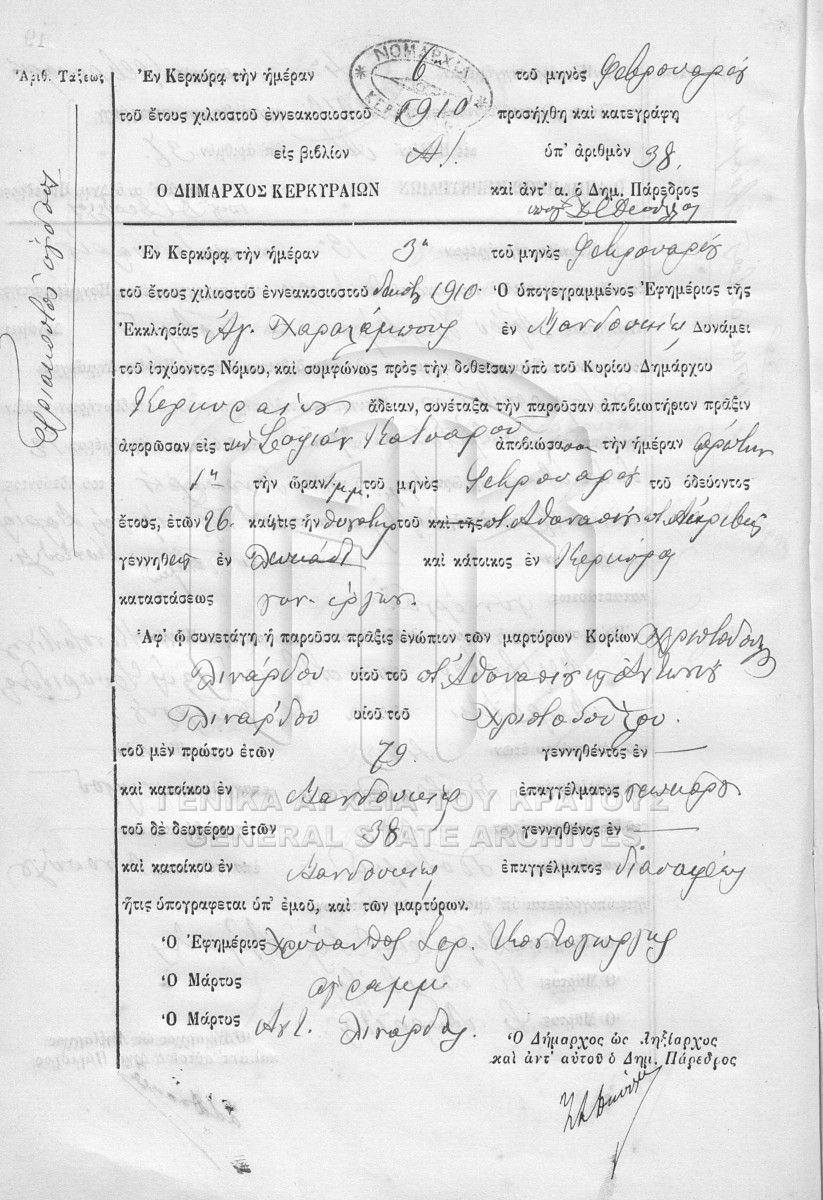 Ἀριθ. Τάξεως
Τριακοστὸν ὄγδοον
ΝΟΜΑΡΧΙΑ
Ἐν Κερκύρᾳ τὴν ἡμέραν 6 τοῦ μηνὸς Φεβρουαρίου
τοῦ ἔτους χιλιοστοῦ ἐννεακοσιοστοῦ 1910 προσήχθη καὶ κατεγράφη
εἰς βιβλίον Α! ὑπ' ἀριθμὸν 38.
Ο ΔΗΜΑΡΧΟΣ ΚΕΡΚΥΡΑΙΩΝ καὶ ἀντ' α. ὁ Δημ. Πάρεδρος
Ἐν Κερκύρᾳ τὴν ἡμέραν 3η τοῦ μηνὸς Φεβρουαρίου
τοῦ ἔτους χιλιοστοῦ ἐννεακοσιοστοῦ δεκάτου 1910. Ὁ ὑπογεγραμμένος Ἐφημέριος τῆς
Ἐκκλησίας Ἁγ. Χαραλάμπους ἐν Μανδουκίῳ Δυνάμει
τοῦ ἰσχύοντος Νόμου, καὶ συμφώνως πρὸς τὴν δοθεῖσαν ὑπὸ τοῦ Κυρίου Δημάρχου
Κερκυραίων ἄδειαν, συνέταξα τὴν παροῦσαν ἀποβιωτήριον πρᾶξιν
ἀφορῶσαν εἰς τὴν Σοφίαν Κατσαροῦ ἀποβιώσασαν τὴν ἡμέραν πρώτην
1ην τὴν ὥραν μ.μ. τοῦ μηνὸς Φεβρουαρίου τοῦ ὁδεύοντος
ἔτους, ἐτῶν 26. καὶ τις ἦν θυγάτηρ τοῦ καὶ τῆς π. Ἀθανασίου κ. Ἀκριβῆς
γεννηθεῖσα ἐν καὶ κάτοικος ἐν Κερκύρᾳ
καταστάσεως
Ἀφ' ᾧ συνετάγη ἡ παροῦσα πρᾶξις ἐνώπιον τῶν μαρτύρων Κορίων Χριστοδούλου
Λινάρδου υἱοῦ τοῦ π. Ἀθανασίου καὶ Ἀντωνίου
Λινάρδου υἱοῦ τοῦ Χριστοδούλου.
τοῦ μὲν πρώτου ἐτῶν 79. γεννηθέντος ἐν —
καὶ κατοίκου ἐν Μανδουκίῳ ἐπαγγέλματος
ΓΕΝΙΚΑ ΑΡΧΕΙΑ ΤΟΥ ΚΡΑΤΟΥΣ
τοῦ δὲ δευτέρου ἐτῶν 38 γεννηθένος ἐν —
GENERAL STATE ARCHIVES
καὶ κατοίκου ἐν Μανδουκίῳ ἐπαγγέλματος
ἥτις ὑπογραφεται ὑπ' ἐμοῦ, καὶ τῶν μαρτύρων.
Ὁ Ἐφημέριος Χρύσανθος Ἱερ. Κοντογιώργης
Ὁ Μάρτυς ἀγράμμ.
Ὁ Μάρτυς Ἀντ. Λινάρδος.
Ὁ Δήμαρχος ὡς Ληξίαρχος
καὶ ἀντ' αὐτοῦ ὁ Δημ. Πάρεδρος